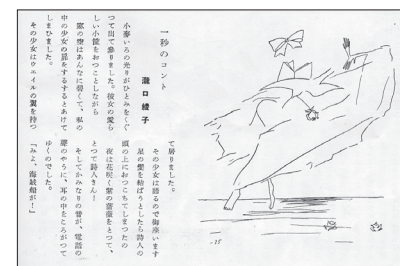 一秒のコント
瀧口綾子
小麥いろの光りがひとみをくぐ
つて出て參りました。彼女の愛ら
しい小鼓をおつことしながら
窓の空はあんなに碧くて、私の
中の少女の扉をするするとあけて
しまひました。
その少女はヴェイルの翼を持つ
て居りました。
その少女は踊るので御座います
足の紐を結ばうとしたら詩人の
頭の上におつこちてしまつたの
夜は花咲く紫の薔薇をとつて、
とつて詩人さん!
そしてかみなりの音が、電話の
のやうに、耳の中をころがつて
ゆくのでした。
「みよ、海賊船が!」